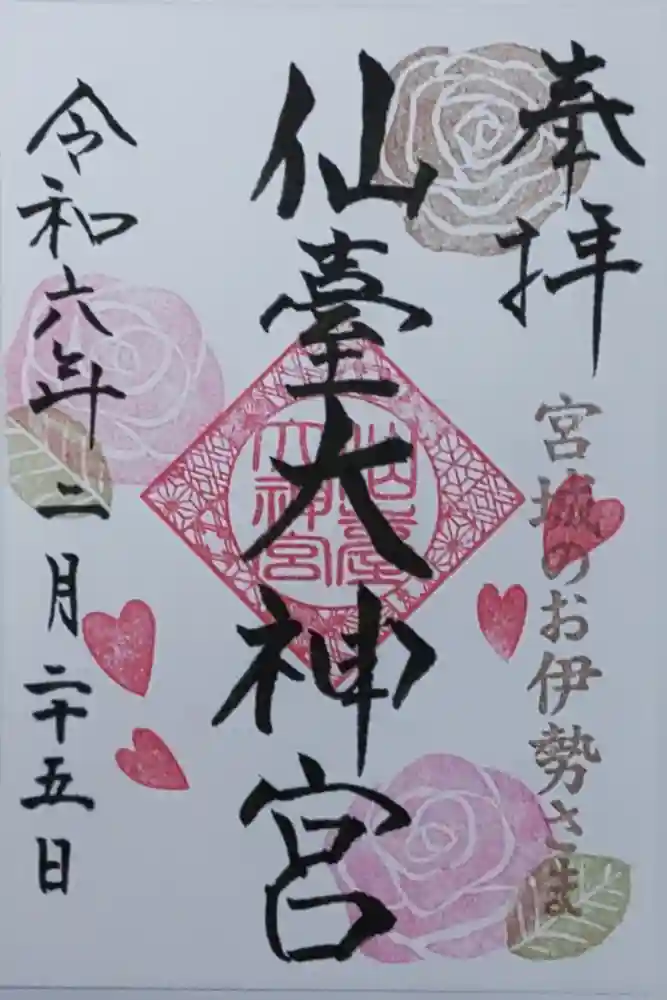 奉拝
宮城のお伊勢さま
仙臺大神宮
仙臺
大神宮
令和六年二月二十五日